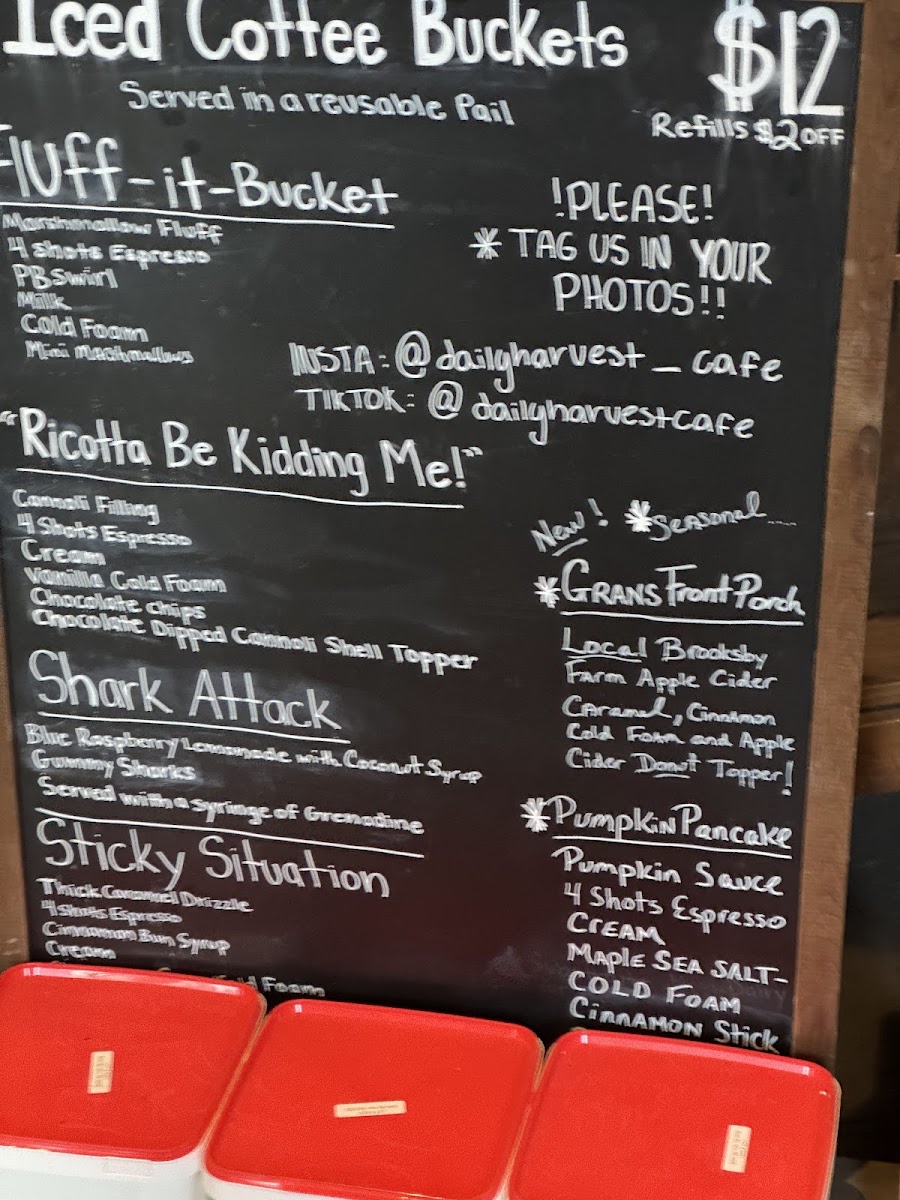 Iced Coffee Buckets
$12
Served in a reusable Pail
Refills $2 OFF
Fluff-it-Bucket
Marshmallow Fluff
4 Shots Espresso
PB Swirl
Milk
Cold Foam
Mini Marshmallows
!PLEASE!
* TAG US IN YOUR
PHOTOS!!
INSTA: @dailyharvest_cafe
TIKTOK: @dailyharvestcafe
"Ricotta Be Kidding Me!"
Cannoli Filling
4 Shots Espresso
Cream
Vanilla Cold Foam
Chocolate Chips
Chocolate Dipped Cannoli Shell Topper
Shark Attack
Blue Raspberry Lemonade with Coconut Syrup
Gummy Sharks
Served with a syringe of Grenadine
Sticky Situation
Thick Caramel Drizzle
4 Shots Espresso
Cinnamon Bun Syrup
Cream
Foam
New! *Seasonal....
*GRANS Front Porch
Local Brooksby
Farm Apple Cider
Caramel, Cinnamon
Cold Foam and Apple
Cider Donut Topper!
*Pumpkin Pancake
Pumpkin Sauce
4 Shots Espresso
CREAM
MAPLE SEA SALT-
COLD FOAM
Cinnamon Stick